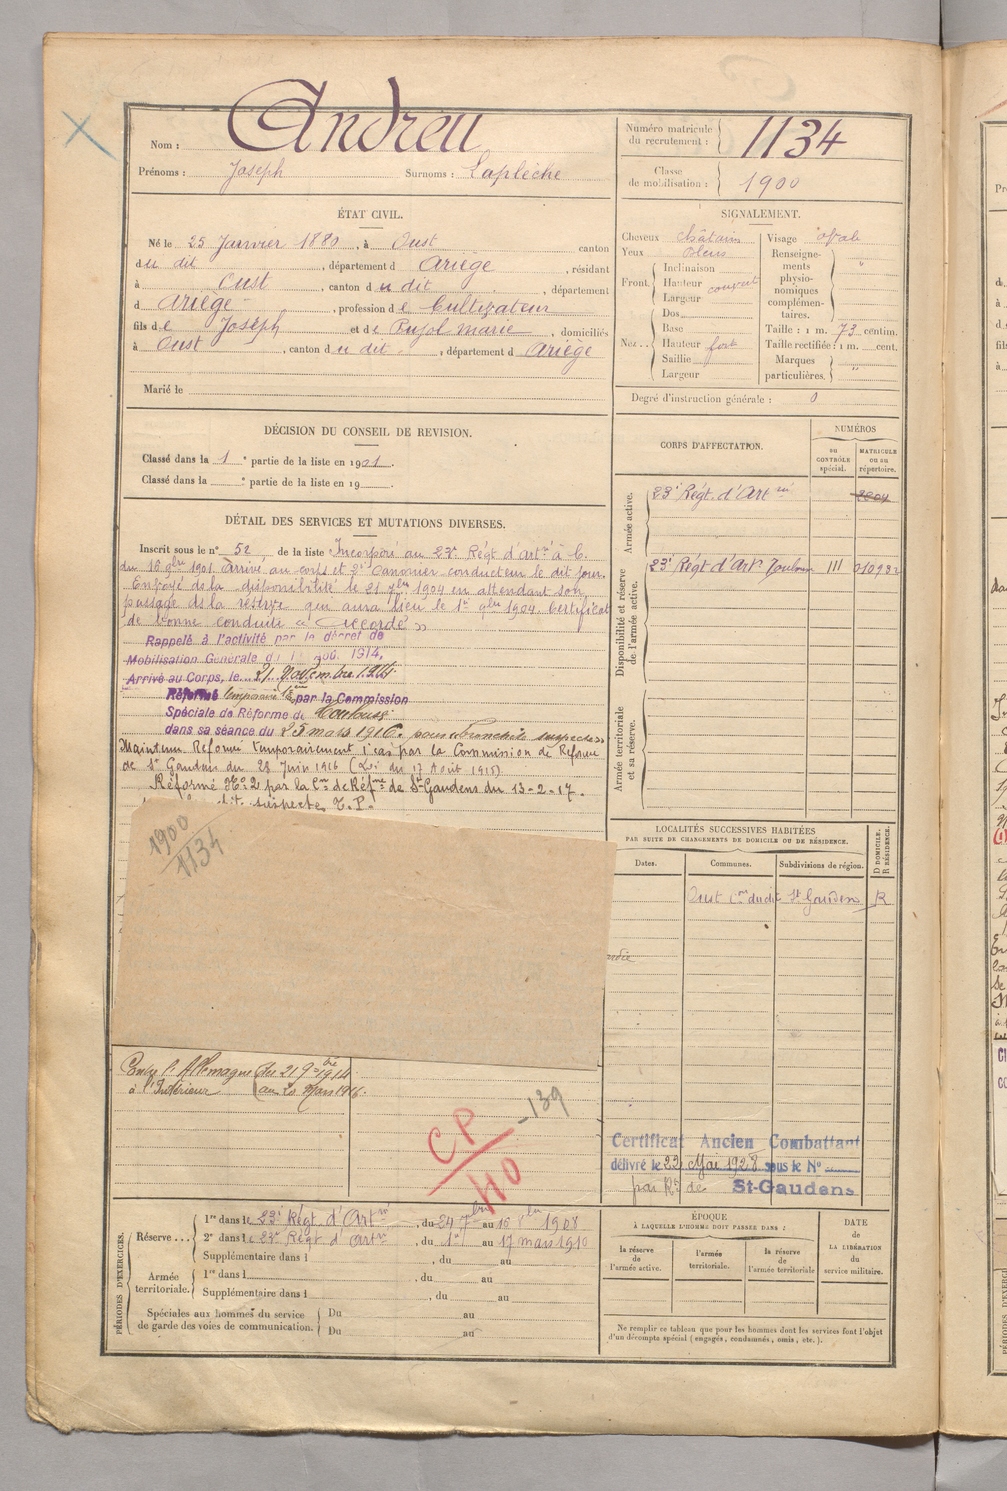 Andreu
Nom :
Prénoms : Joseph Surnoms : Laplèche
Numéro matricule du recrutement : 1134
Classe de mobilisation : 1900
ÉTAT CIVIL.
Né le 25 Janvier 1880, à Oust canton
du dit, département d Ariège, résidant
à Oust, canton du dit, département
d Ariège, profession de Cultivateur
fils de Joseph et de Pujol Marie, domiciliés
à Oust, canton du dit, département d Ariège
Marié le
SIGNALEMENT.
Cheveux châtain
Yeux bleus
Front. Inclinaison
Hauteur couvert
Largeur
Nez.. Dos
Base
Hauteur fort
Saillie
Largeur
Visage ovale
Renseignements physionomiques complémentaires. "
Taille : 1 m. 73 centim.
Taille rectifiée : 1 m. cent.
Marques particulières. "
Degré d'instruction générale : 0
DÉCISION DU CONSEIL DE REVISION.
Classé dans la 1e partie de la liste en 1901.
Classé dans la e partie de la liste en 19
DÉTAIL DES SERVICES ET MUTATIONS DIVERSES.
Inscrit sous le n° 52 de la liste Incorporé au 23e Régt d'Artie à C.
du 16 9bre 1901. Arrivé au corps et 2e Canonier conducteur le dit jour.
Envoyé ds la disponibilité le 21 7bre 1904 en attendant son
passage ds la réserve qui aura lieu le 1er 9bre 1904. Certificat
de bonne conduite « Accordé »
Rappelé à l'activité par le décret de
Mobilisation Générale du 1 août 1914,
Arrivé au Corps, le 21 Novembre 1914
Réformé temporairt par la Commission
Spéciale de Réforme de Toulouse
dans sa séance du 25 mars 1916. pour bronchite suspecte
Maintenu Réformé temporairement 1 cat par la Commission de Réforme
de St Gaudens du 28 Juin 1916 (Loi du 17 Août 1915)
Réformé N° 2 par la Con de Réfme de St Gaudens du 13-2-17.
suspecte T.P.
1900
1134
CORPS D'AFFECTATION.
NUMÉROS
au CONTRÔLE spécial.
MATRICULE ou au répertoire.
Armée active.
23e Régt. d'Artie
Disponibilité et réserve de l'armée active.
23e Régt d'Art. Toulouse III 01093
Armée territoriale et sa réserve.
LOCALITÉS SUCCESSIVES HABITÉES
PAR SUITE DE CHANGEMENTS DE DOMICILE OU DE RÉSIDENCE.
Dates. Communes. Subdivisions de région. D DOMICILE. R RÉSIDENCE.
Oust con du dit St Gaudens R
Contre l'Allemagne du 21 9bre 1914
à l'Intérieur au 20 Mars 1916.
CP
40
-139
Certificat Ancien Combattant
délivré le 22 Mai 1928 sous le N°
par Rt de St-Gaudens
PÉRIODES D'EXERCICES.
Réserve ... 1re dans le 23e Régt. d'Artie, du 24 7bre au 1908
2e dans le 23e Régt d'Artie, du 1er au 17 mars 1910
Supplémentaire dans l , du au
Armée territoriale. 1re dans l , du au
Supplémentaire dans l , du au
Spéciales aux hommes du service de garde des voies de communication. Du au
Du au
ÉPOQUE
À LAQUELLE L'HOMME DOIT PASSER DANS :
la réserve de l'armée active.
l'armée territoriale.
la réserve de l'armée territoriale
DATE DE LA LIBÉRATION du service militaire.
Ne remplir ce tableau que pour les hommes dont les services font l'objet
d'un décompte spécial (engagés, condamnés, omis, etc.).